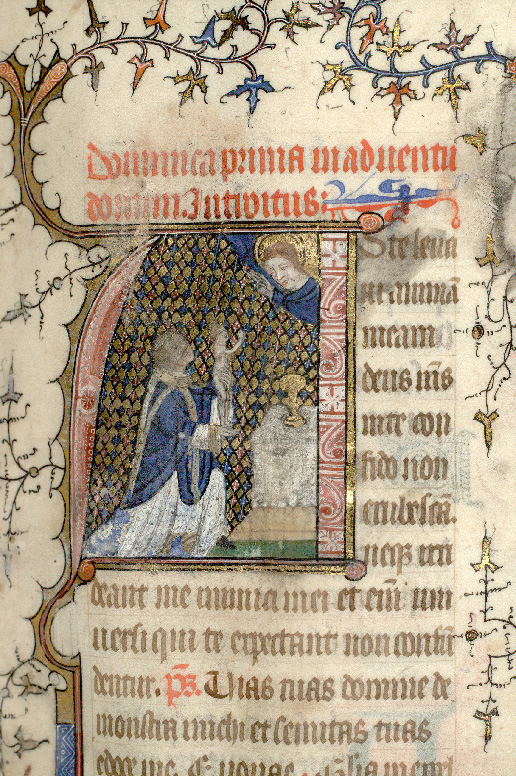 Dominica prima in aduentu
domini. Introitus:
D te leuaui
animā
meam
deus m̄s
in te con
fido non
erubescā.
neqꝫ irri
deant me inimici mei et eni uni
uersi qui te expectant non confū
dentur. p̄s. Uias tuas domine de
monstra michi et semitas tuas
edoce me.